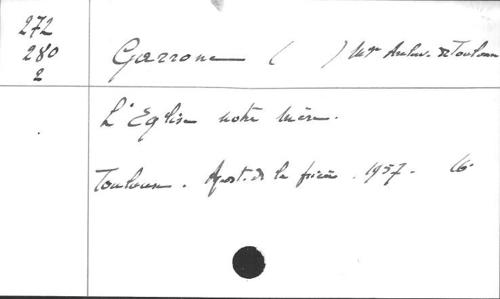 272
280
2
Garrone ( ) Mgr Archev. de Toulouse
L'Eglise notre Mère.
Toulouse. Apost. de la prière. 1957. 16